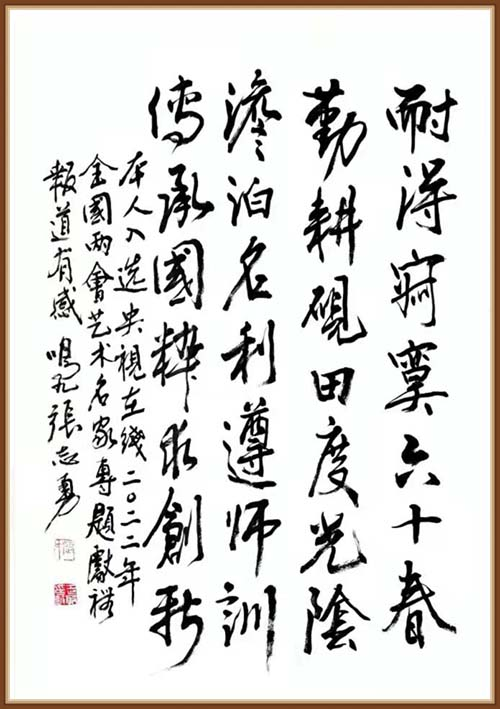 耐得寂寞六十春
勤耕硯田度光陰
澹泊名利遵師訓
傳承國粹求創新
本人入选央視在綫二〇二二年
全國兩會艺术名家專題獻
報道有感 鳴 張志勇